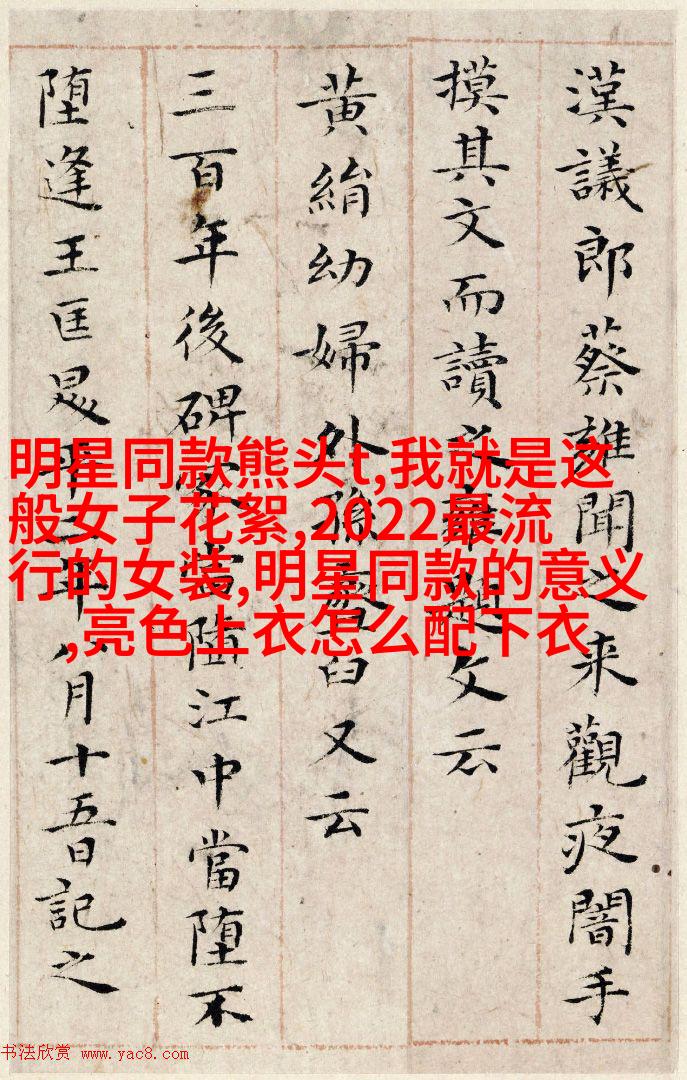 漢議郎蔡雍聞之来觀夜闇手
摸其文而讀之雍題文云
黃絹幼婦外孫臼又云
三百年後碑冢當墮江中當墮不
墮逢王匡平二年八月十五日記之
明星同款熊头t,我就是这
般女子花絮,2022最流
行的女装,明星同款的意义
,亮色上衣怎么配下衣
书法欣赏 www.yac8.com